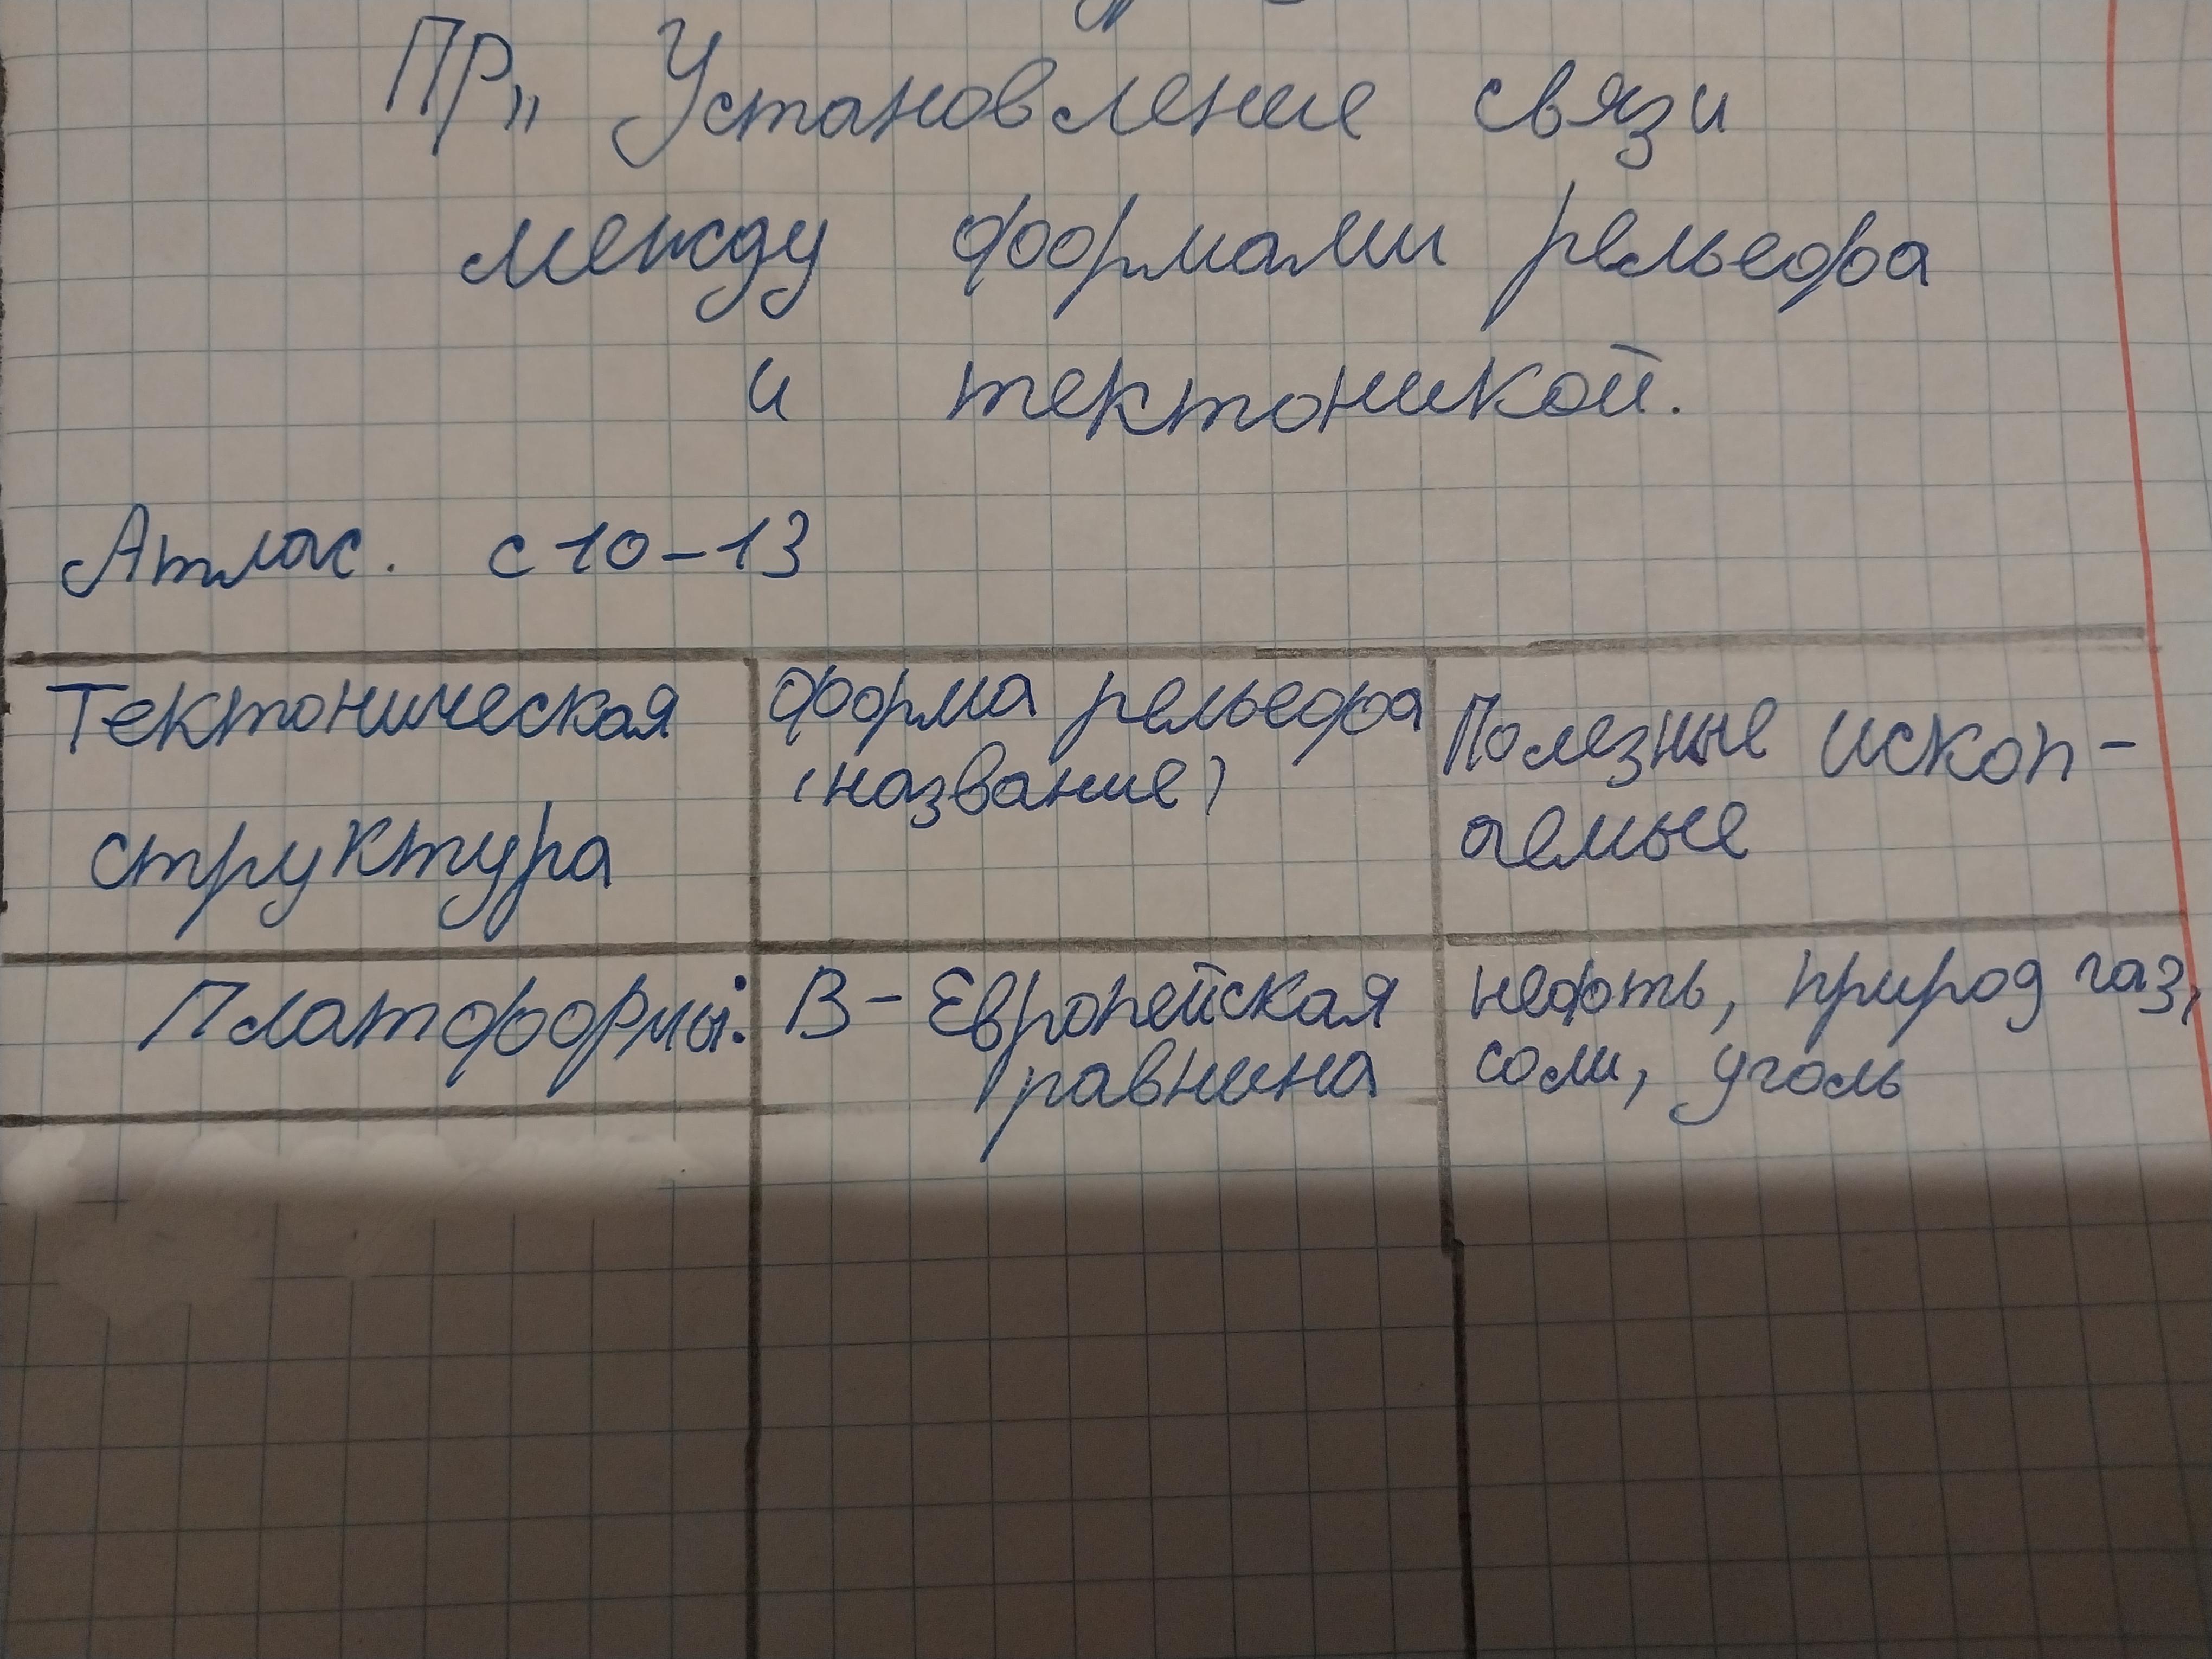 ПР„ Установление связи
между формами рельефа
и тектоникой.
Атлас. с 10-13
Тектоническая
структура
форма рельефа
(название)
Полезныеископ-
аемые
Платформы:
В-Европейская
равнина
нефть, природ газ,
соли, уголь